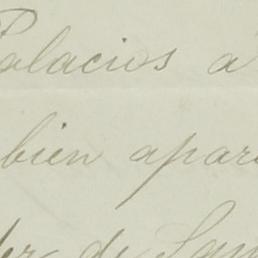 Palacios á
bien apar
der de San